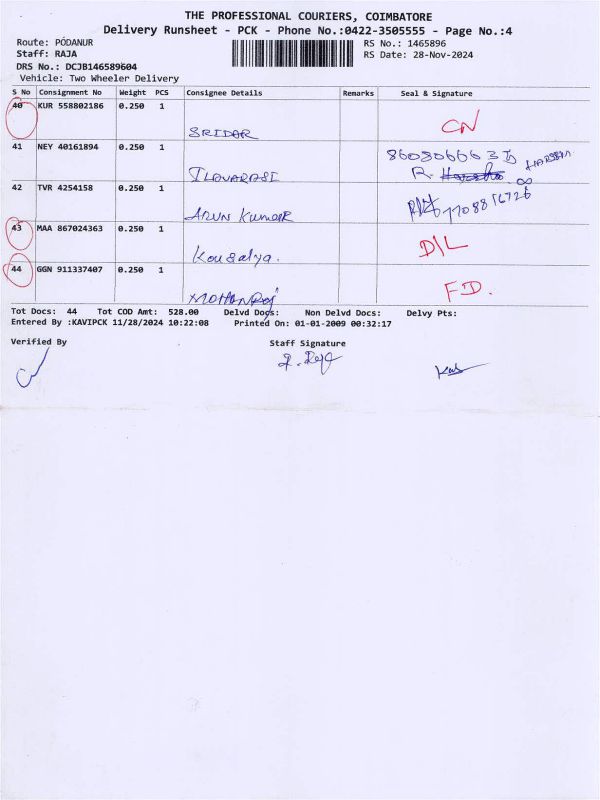 THE PROFESSIONAL COURIERS, COIMBATORE
Delivery Runsheet - PCK - Phone No.:0422-3505555 - Page No.:4
Route: PODANUR
RS No.: 1465896
Staff: RAJA
RS Date: 28-Nov-2024
DRS No.: DCJB146589604
Vehicle: Two Wheeler Delivery
S No Consignment No Weight PCS Consignee Details Remarks Seal & Signature
40 KUR 558802186 0.250 1 SRIDAR CN
41 NEY 40161894 0.250 1 ILAVARASI
R.
42 TVR 4254158 0.250 1 ARUN KUMAR
43 MAA 867024363 0.250 1 Kousalya. D/L
44 GGN 911337407 0.250 1 MOHANRAJ FD.
Tot Docs: 44 Tot COD Amt: 528.00 Delvd Docs: Non Delvd Docs: Delvy Pts:
Entered By :KAVIPCK 11/28/2024 10:22:08 Printed On: 01-01-2009 00:32:17
Verified By Staff Signature